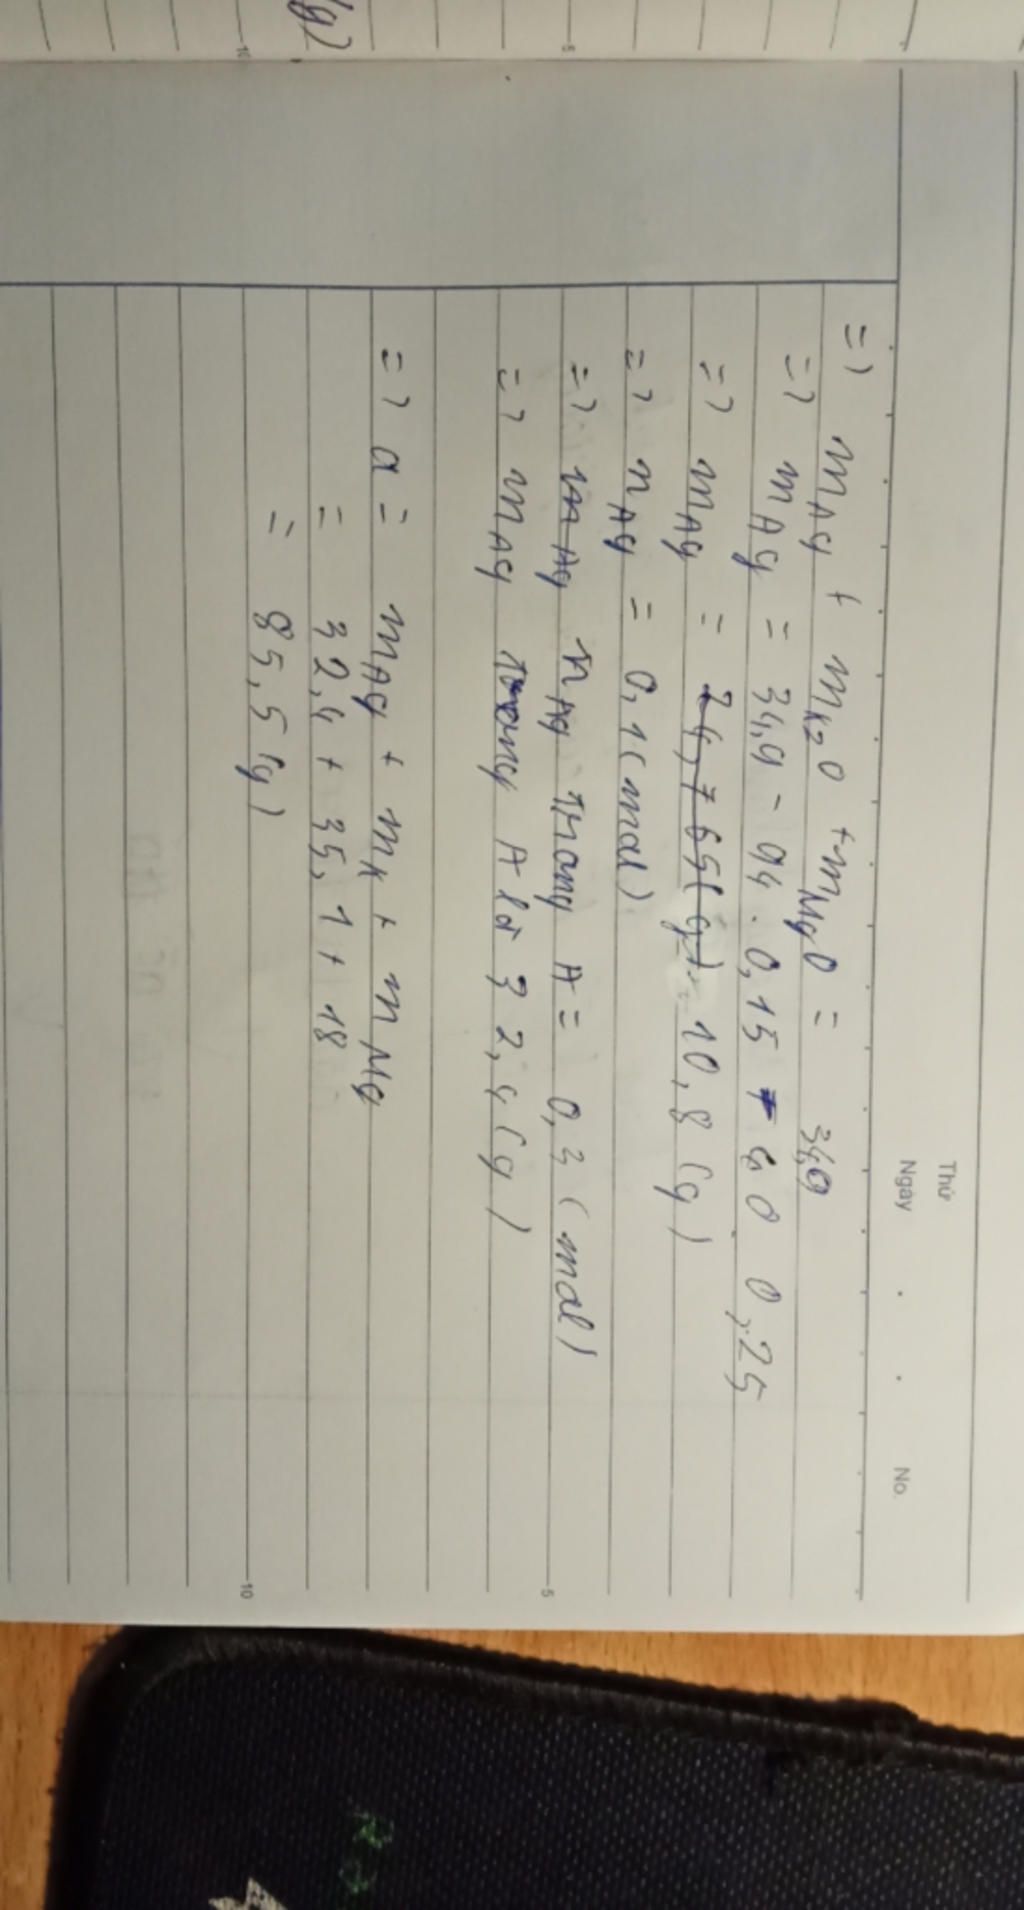 g)
Thứ
Ngày . . No.
=> mAg + mK2O + mMgO = 34,9
=> mAg = 34,9 - 94 . 0,15 - 40 0,25
=> mAg = 24,765(g) 10,8 (g)
=> nAg = 0,1 (mol)
=> mAg nAg trong A = 0,3 (mol)
=> mAg trong A là 32,4 (g)
=> a = mAg + mK + mMg
= 32,4 + 35,1 + 18
= 85,5 (g)
5
10
5
10